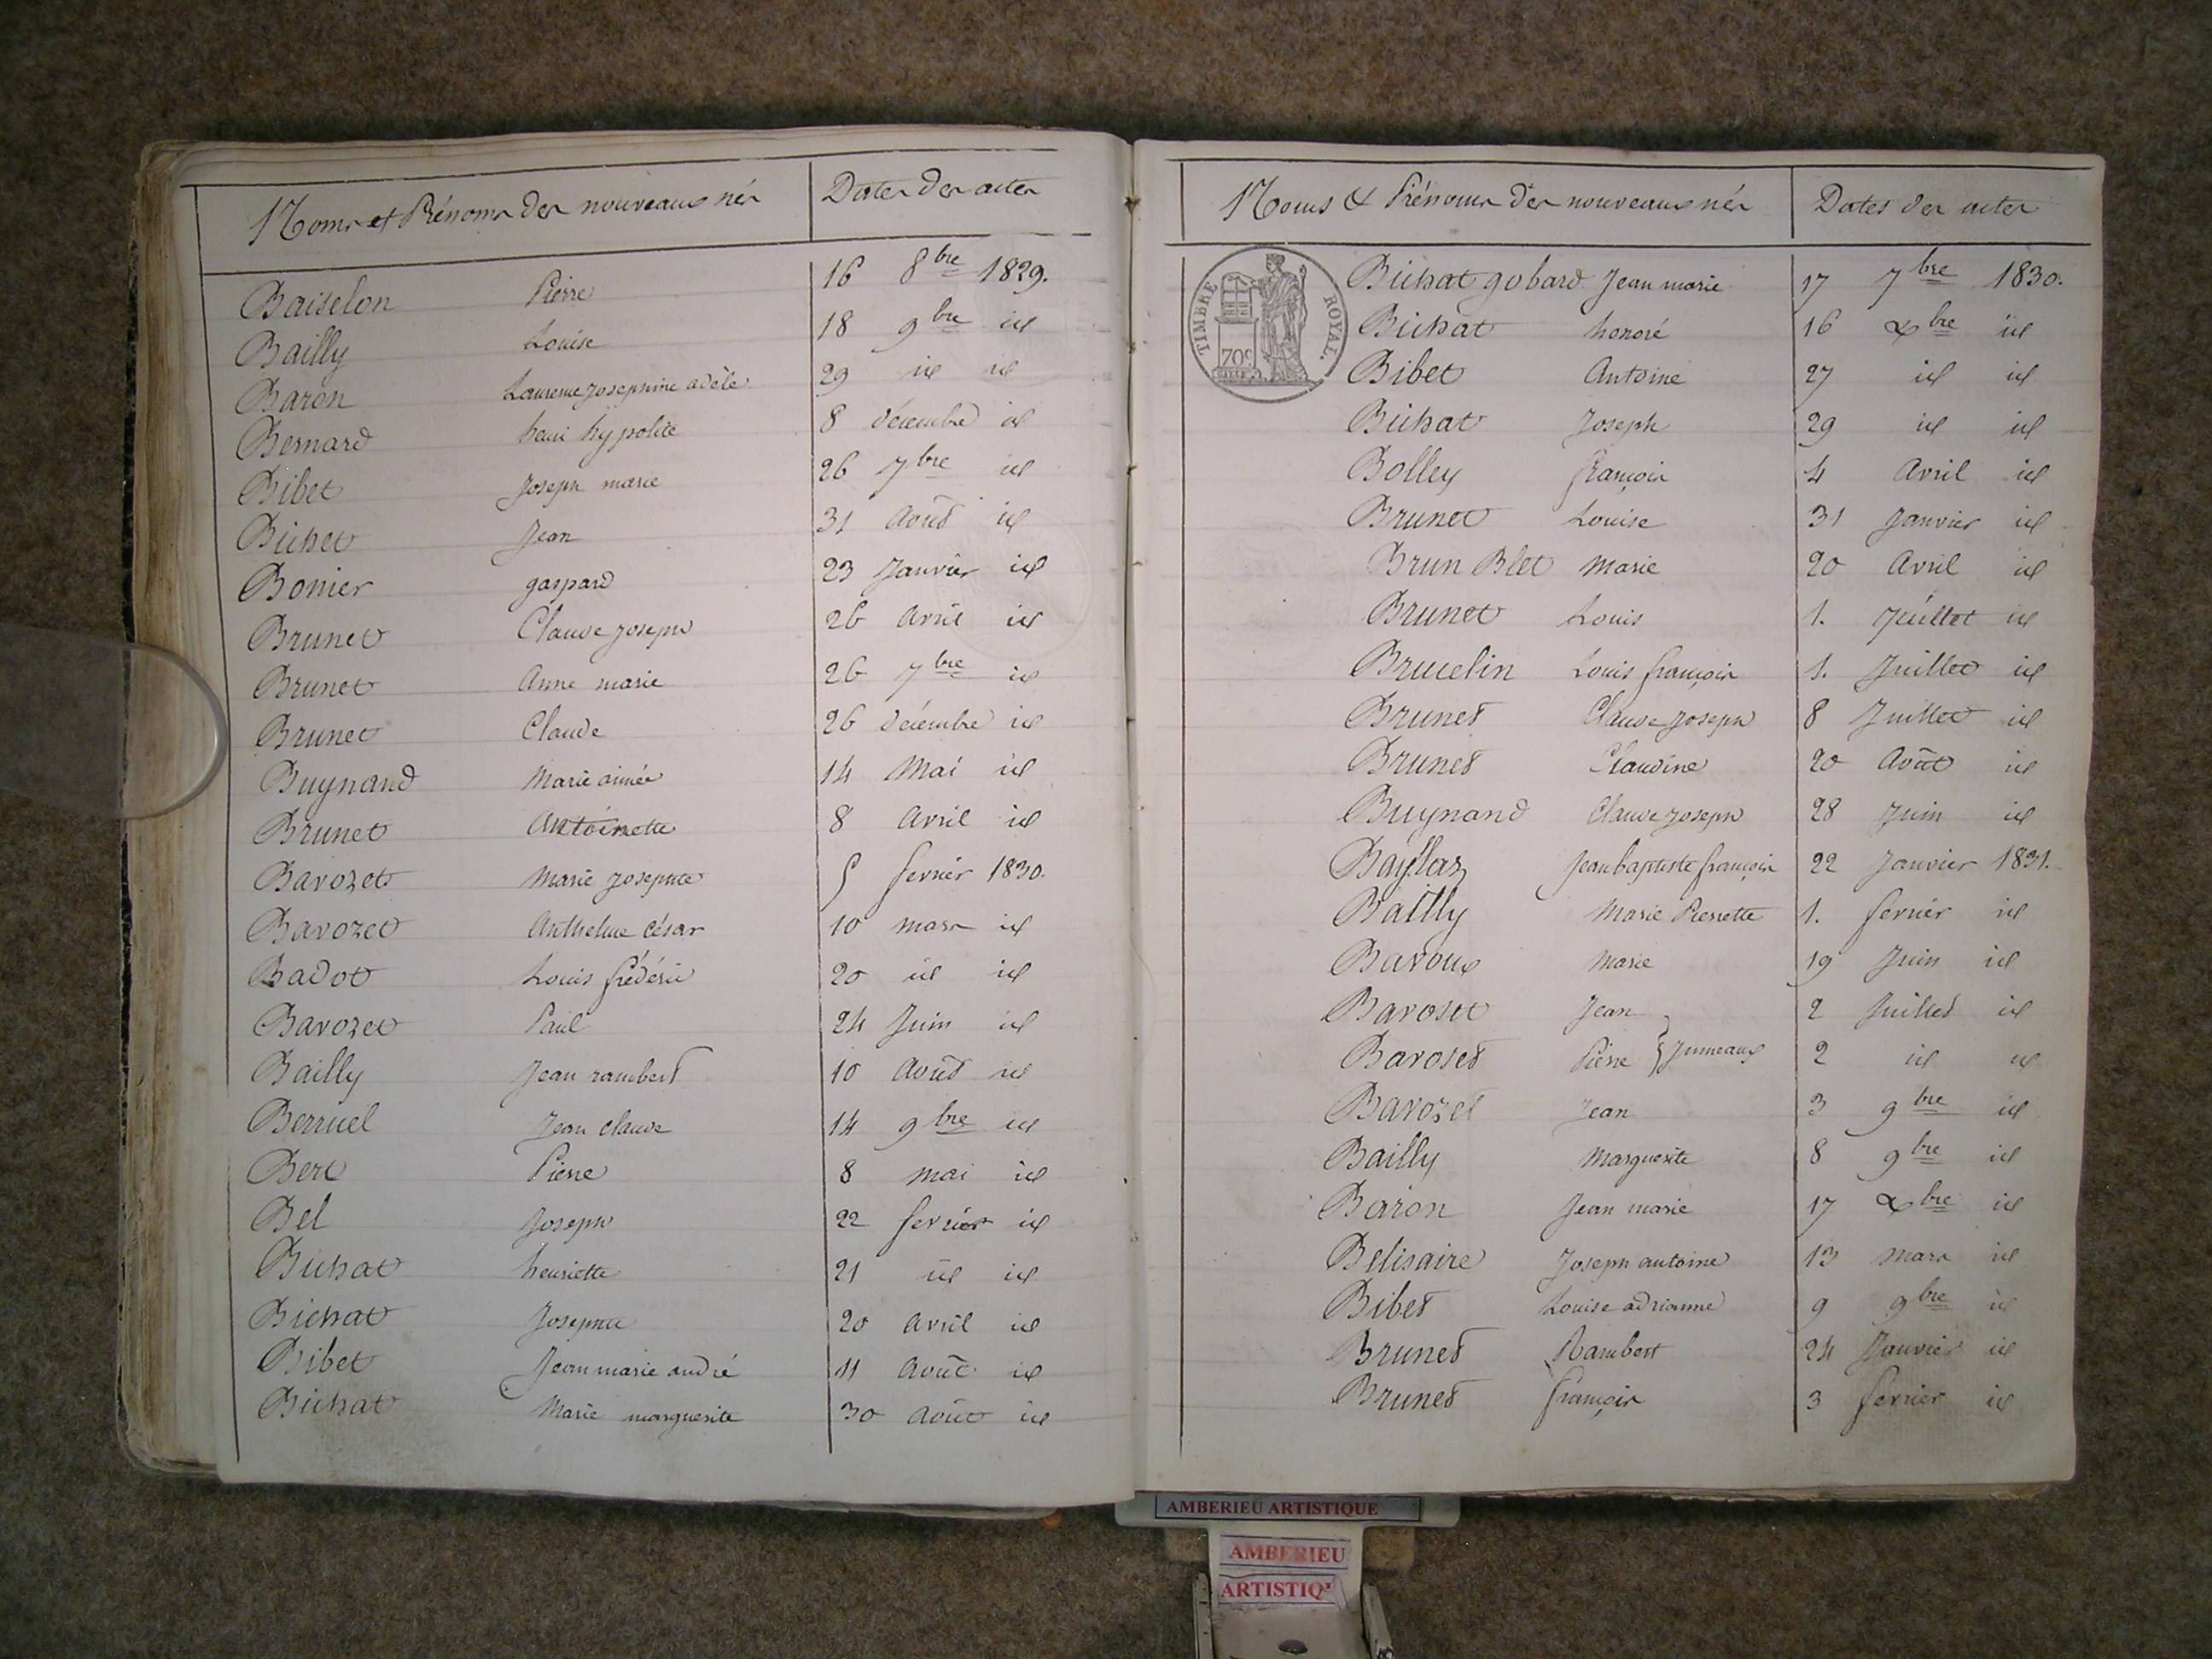 Noms et Prénoms des nouveaux nés Dates des actes
Baiselon Pierre 16 8bre 1829.
Bailly Louise 18 9bre id
Baron Laurence Josephine adèle 29 id id
Bernard henri hypolite 8 décembre id
Bibet Joseph marie 26 7bre id
Bichet Jean 31 Août id
Bonier gaspard 23 Janvier id
Brunet Claude Joseph 26 Avril id
Brunet Anne marie 26 7bre id
Brunet Claude 26 décembre id
Buynand Marie aimée 14 Mai id
Brunet Antoinette 8 Avril id
Bavozet Marie Josephte 5 fevrier 1830.
Bavozet Anthelme César 10 mars id
Badot Louis frédéric 20 id id
Bavozet Paul 24 Juin id
Bailly Jean rambert 10 Août id
Berruel Jean Claude 14 9bre id
Bert Pierre 8 mai id
Bel Joseph 22 fevrier id
Bichat henriette 21 id id
Bichat Josephte 20 Avril id
Bibet Jean marie andré 11 Août id
Bichat Marie marguerite 30 Août id
Noms & Prénoms des nouveaux nés Dates des actes
TIMBRE ROYAL.
70c
Bichat gobard Jean marie 17 7bre 1830.
Bichat honoré 16 Xbre id
Bibet Antoine 27 id id
Bichat Joseph 29 id id
Bolley françois 4 Avril id
Brunet Louise 31 Janvier id
Brun Blet Marie 20 Avril id
Brunet Louis 1. Juillet id
Brucelin Louis françois 1. Juillet id
Brunet Claude Joseph 8 Juillet id
Brunet Claudine 20 Août id
Buynand Claude Joseph 28 Juin id
Baÿlaz Jean baptiste françois 22 Janvier 1831.
Bailly Marie Pierrette 1. fevrier id
Bavoux Marie 19 Juin id
Bavoset Jean 2 Juillet id
Bavoset Pierre } Jumeaux 2 id id
Bavozet Jean 3 9bre id
Bailly Marguerite 8 9bre id
Baron Jean marie 17 Xbre id
Belisaire Joseph antoine 13 mars id
Bibet Louise adrianne 9 9bre id
Brunet Rambert 24 Janvier id
Brunet françois 3 fevrier id
AMBERIEU ARTISTIQUE
AMBERIEU
ARTISTIQ